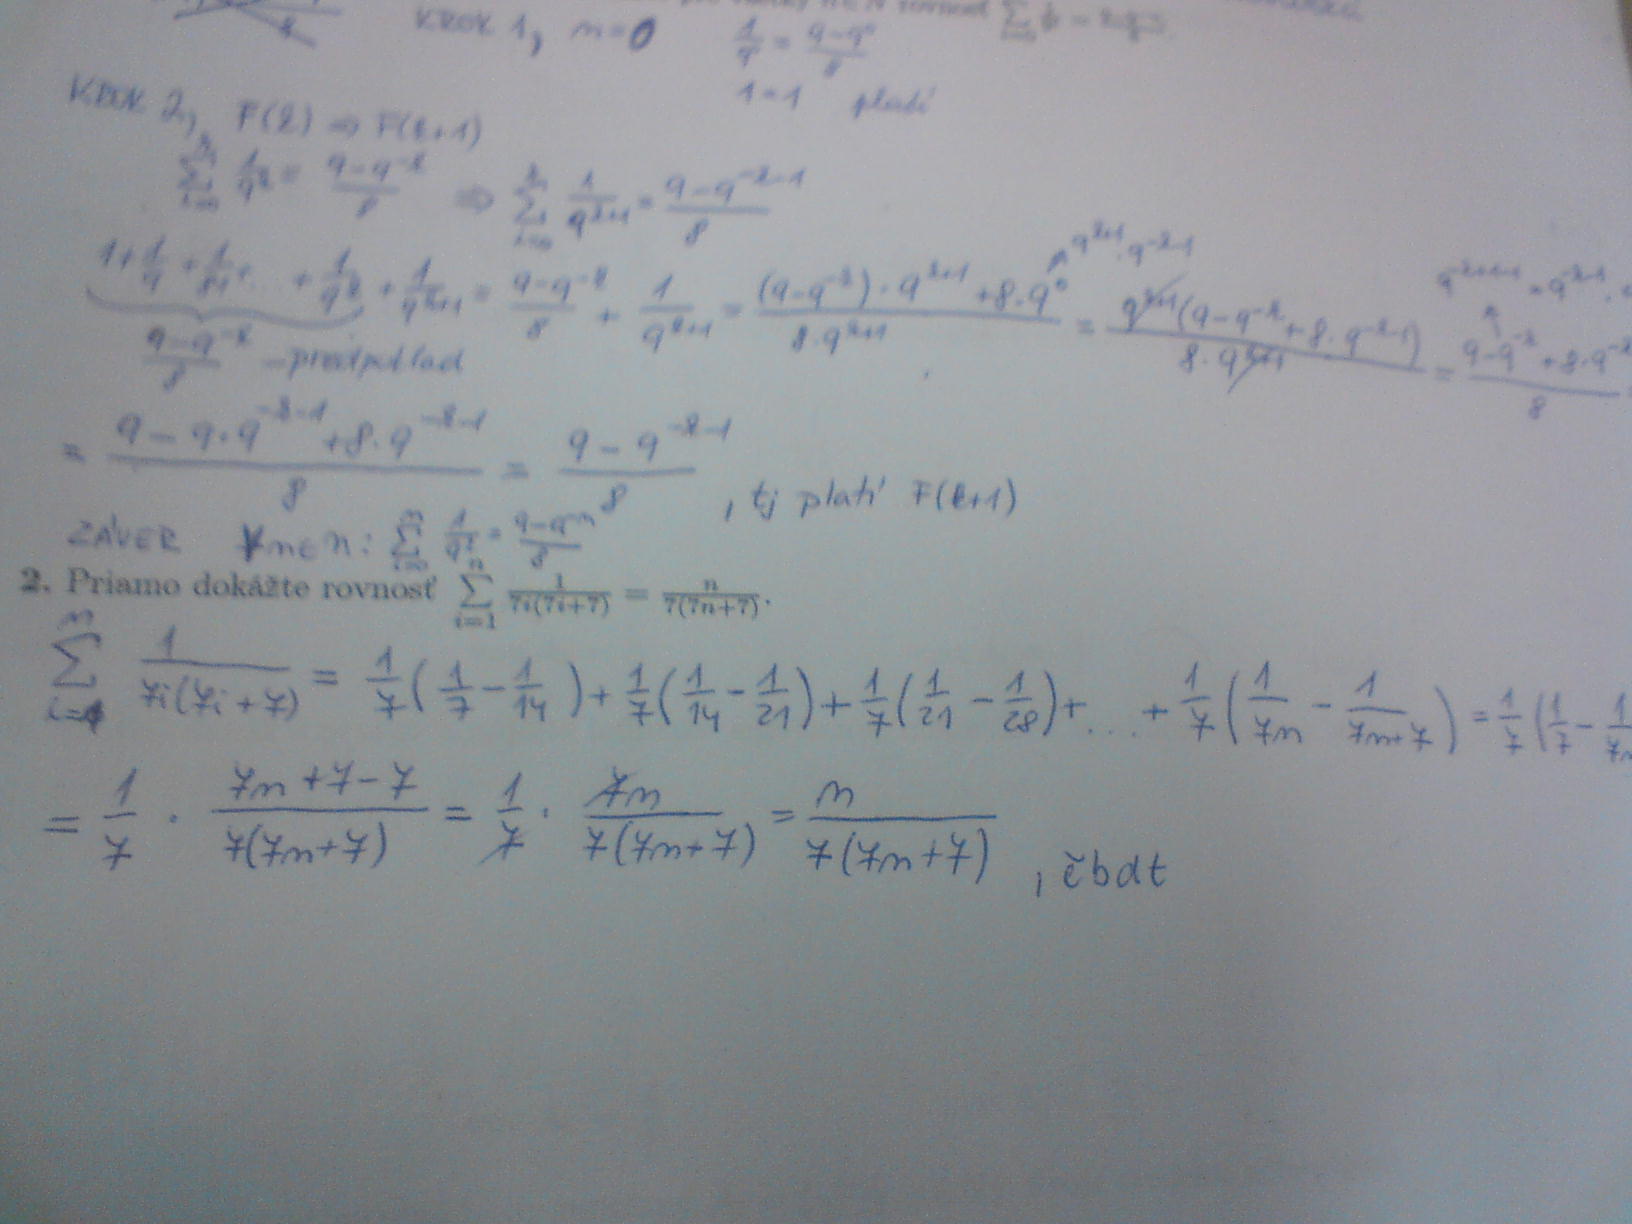 KROK 1, n=0 1/9 = (9-9⁰)/8
1=1 platí
KROK 2, F(k) ⇒ F(k+1)
∑ᵢ₌₀ᵏ 1/9ᵏ = (9-9⁻ᵏ)/8 ⇒ ∑ᵢ₌₀ᵏ 1/9ᵏ⁺¹ = (9-9⁻ᵏ⁻¹)/8
9ᵏ⁺¹·9⁻ᵏ⁻¹
1+1/9+1/81+...+1/9ᵏ + 1/9ᵏ⁺¹ = (9-9⁻ᵏ)/8 + 1/9ᵏ⁺¹ = ((9-9⁻ᵏ)·9ᵏ⁺¹+8·9⁰)/(8·9ᵏ⁺¹) = (9ᵏ⁺¹(9-9⁻ᵏ+8·9⁻ᵏ⁻¹))/(8·9ᵏ⁺¹) = (9-9⁻ᵏ+8·9⁻ᵏ)/8
(9-9⁻ᵏ)/8 - predpoklad
= (9-9·9⁻ᵏ⁻¹+8·9⁻ᵏ⁻¹)/8 = (9-9⁻ᵏ⁻¹)/8, tj platí F(k+1)
ZÁVER ∀n∈N: ∑ᵢ₌₀ⁿ 1/9ⁱ = (9-9⁻ⁿ)/8
2. Priamo dokážte rovnosť ∑ᵢ₌₁ⁿ 1/(7i(7i+7)) = n/(7(7n+7)).
∑ᵢ₌₁ⁿ 1/(7i(7i+7)) = 1/7(1/7-1/14)+1/7(1/14-1/21)+1/7(1/21-1/28)+...+1/7(1/7n-1/(7n+7)) = 1/7(1/7-1/7n
= 1/7·(7n+7-7)/(7(7n+7)) = 1/7·7n/(7(7n+7)) = n/(7(7n+7)), čbdt